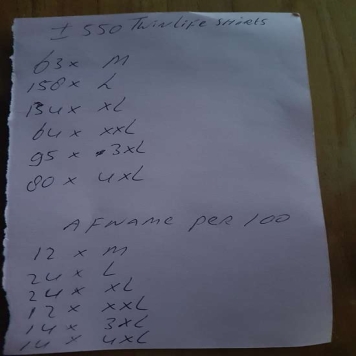 ± 550 Twinlife shirts
63x M
158x L
134x XL
64x XXL
95x 3XL
80x 4XL
AFNAME per 100
12 x M
24 x L
24 x XL
12 x XXL
14 x 3XL
14 x 4XL